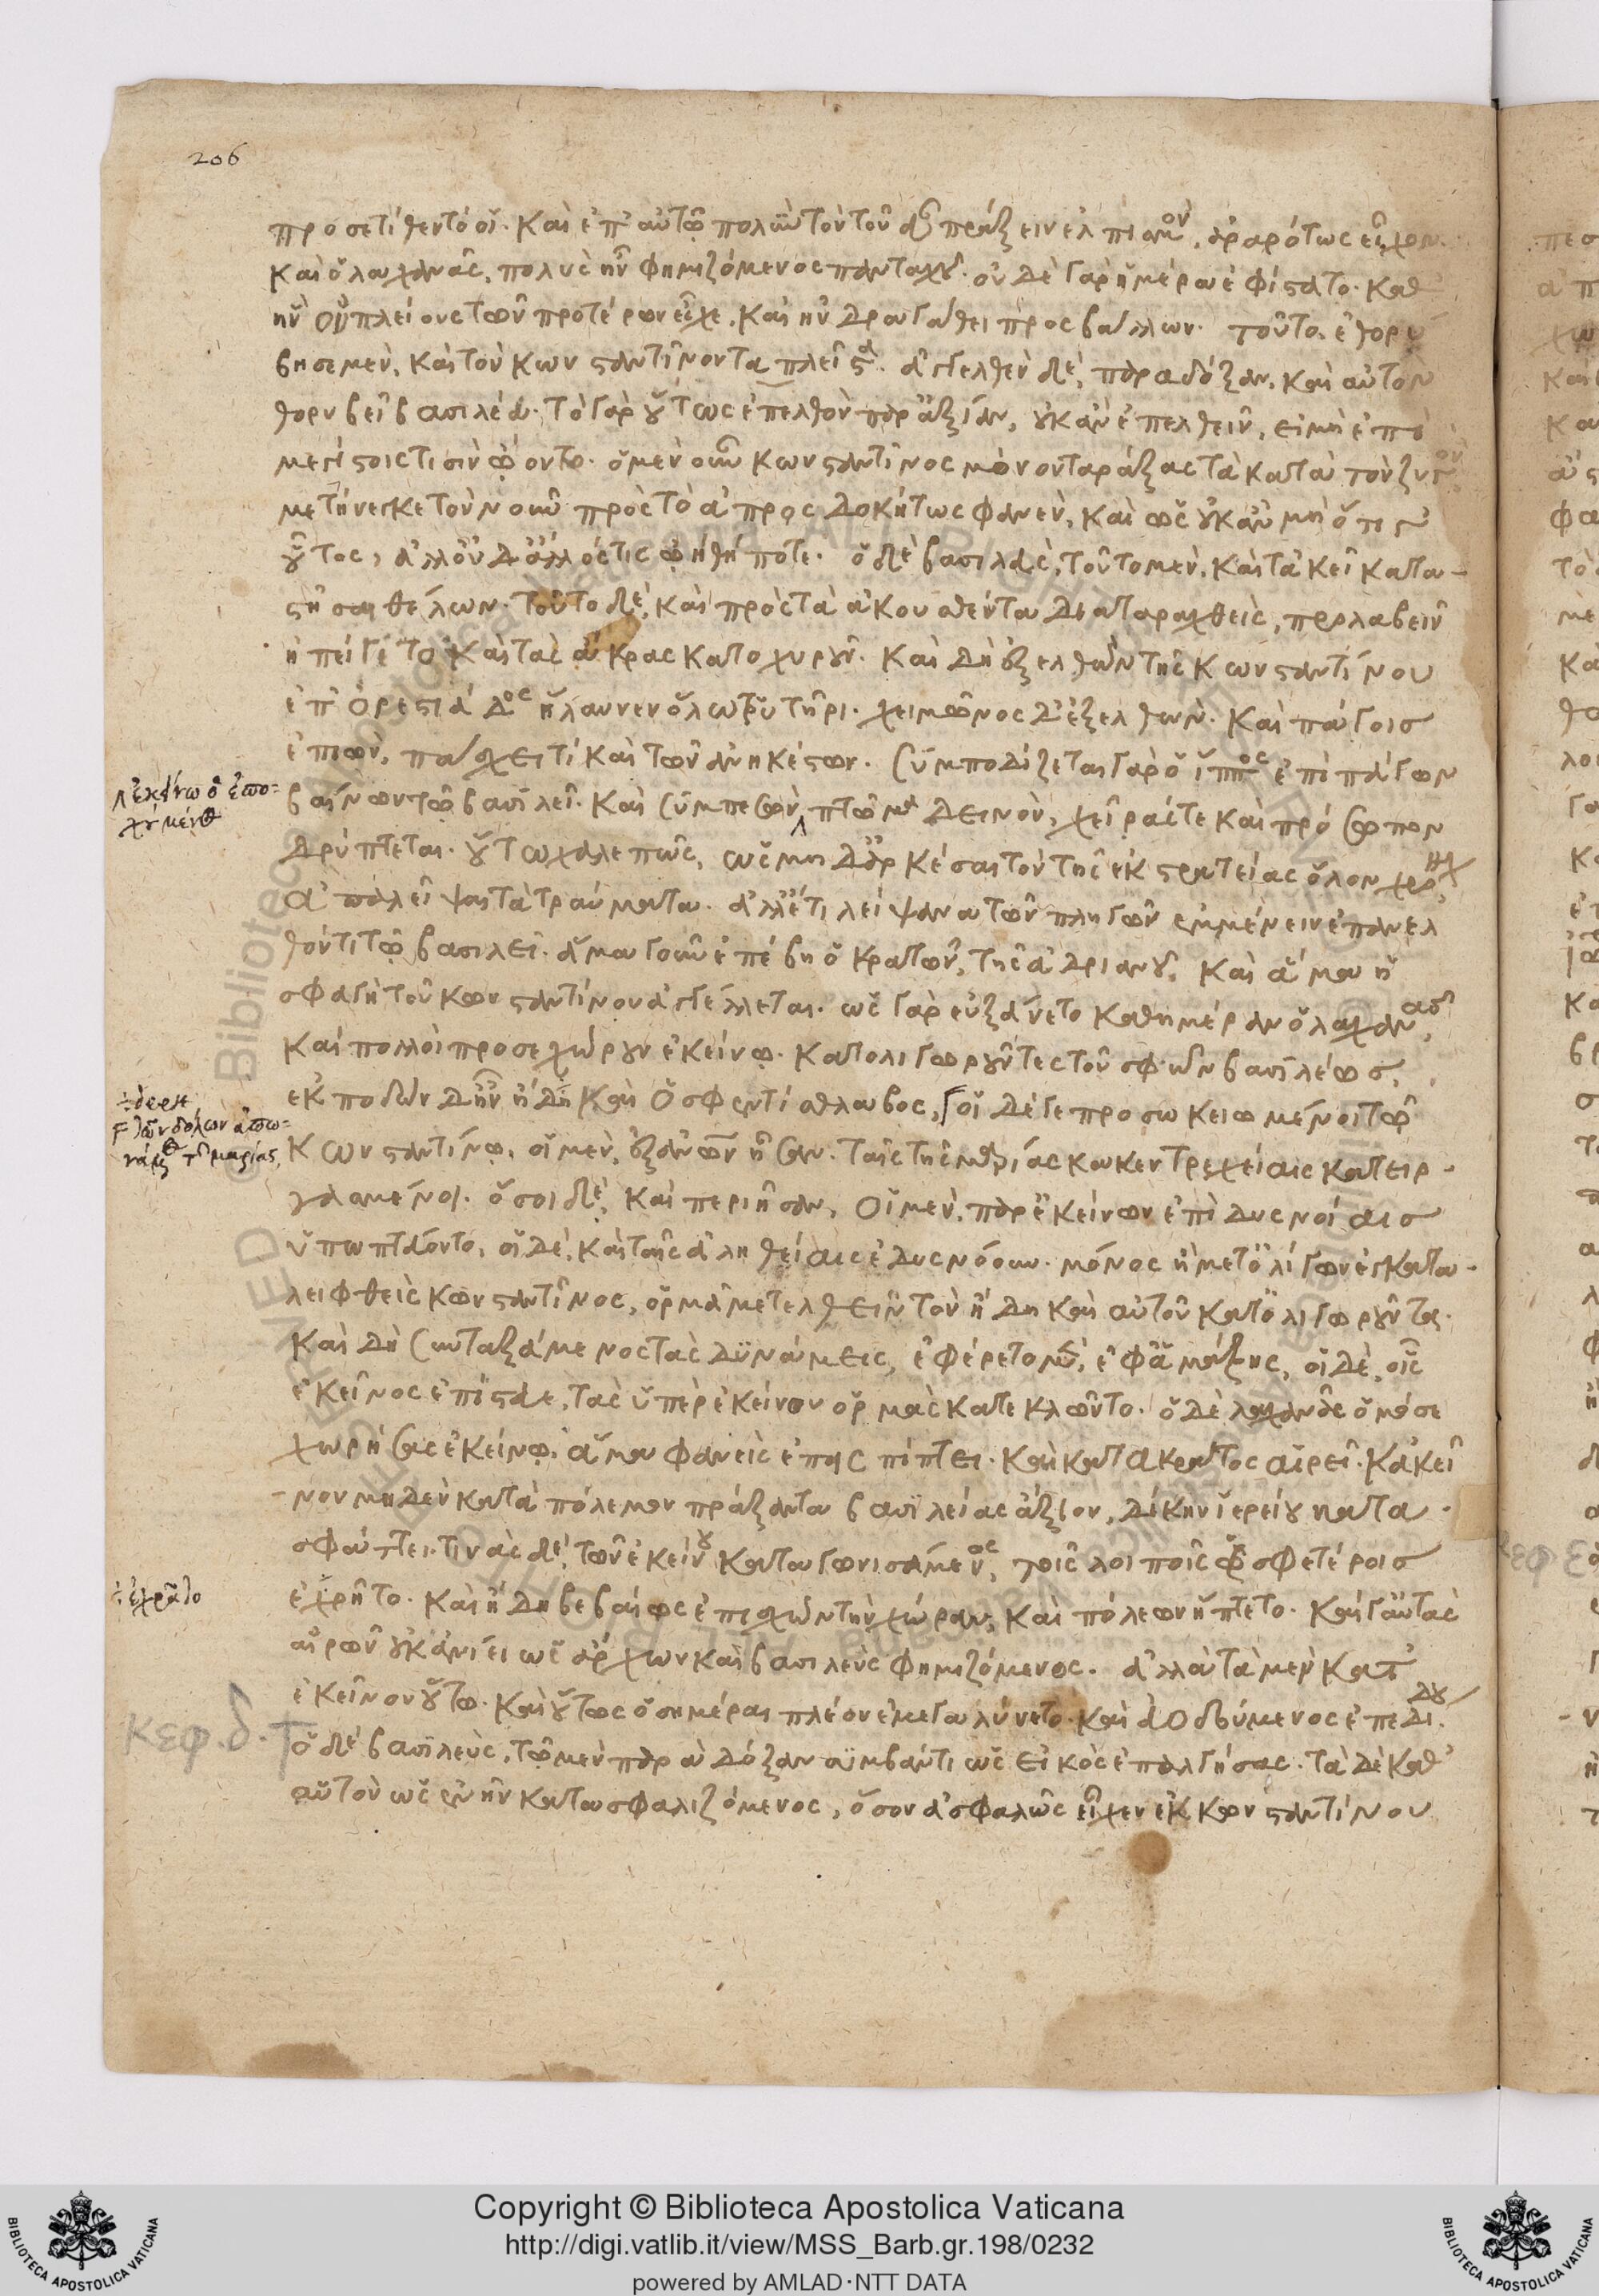 206
προσετίθεντό οἱ. καὶ ἐπ' αὐτῷ πολὺν τὸν τοῦ εὖ πράξειν ἐλπισμὸν, ἀραρότως εἶχον.
καὶ ὁ λαχανᾶς, πολὺς ἦν φημιζόμενος πανταχοῦ. οὐδὲ γὰρ ἡμέραν ἐφίστατο. καθ'
ἣν οὐ πλείους τῶν προτέρων εἶχε. καὶ ἦν
τοῦτο. ἐθορύ
βησε μὲν, καὶ τὸν κωνσταντῖνον τὰ πλεῖστα. ἀπελθὸν δὲ, παραδόξαν, καὶ αὐτὸν
θορυβεῖ βασιλέα. τὸ γὰρ οὕτως ἐπελθὸν παρ' ἀξίαν, οὐκ ἂν ἐπελθεῖν, εἰ μὴ ἐπὶ
μεγίστοις τισὶν ᾤοντο. ὁ μὲν οὖν κωνσταντῖνος μόνον ταράξας τὰ κατὰ τὸν ζυγὸν
μετήνεγκε τὸν νοῦν πρὸς τὸ ἀπροσδοκήτως φανὲν, καὶ ὡς οὐκ ἂν μὴ ὅτι γε
οὗτος, ἀλλ' οὐδ' ἄλλός τις ᾠήθη ποτε. ὁ δὲ βασιλεὺς, τοῦτο μὲν, καὶ τἀκεῖ κατα-
στῆσαι θέλων. τοῦτο δὲ, καὶ πρὸς τὰ ἀκουσθέντα διαταραχθεὶς, προλαβεῖν
ἠπείγετο καὶ τὰς ἄκρας κατοχυροῦν. καὶ δὴ ἐξελθὼν τῆς κωνσταντίνου
ἐπ' ὀρεστιάδος ἤλαυνεν ὅλῳ ῥυτῆρι. χειμῶνος δ' ἐξελθὼν. καὶ πάγοις
ἐπιὼν, πάσχει τί καὶ τῶν ἀνηκέστων. συμποδίζεται γὰρ ὁ ἵππος ἐπὶ πάγων
βαίνων τῷ βασιλεῖ. καὶ συμπεσὼν πτῶμα δεινὸν, χεῖράς τε καὶ πρόσωπον
δρύπτεται. οὕτω χαλεπῶς, ὡς μὴ δ' ἀρκέσαι τὸν τῆς ἐκστρατείας ὅλον χρόνον
ἀπαλεῖψαι τὰ τραύματα. ἀλλ' ἔτι λείψανα τῶν πληγῶν ἐμμένειν ἐπανελ
θόντι τῷ βασιλεῖ. ἅμα γοῦν ἐπέβη ὁ κρατῶν, τῆς ἀδριανοῦ. καὶ ἅμα ἡ
σφαγὴ τοῦ κωνσταντίνου ἀγγέλλεται. ὡς γὰρ εὐξάνετο καθημέραν ὁ λαχανᾶς,
καὶ πολλοὶ προσεχώρουν ἐκείνῳ. κατολιγωροῦντες τοῦ σφῶν βασιλέως,
ἐκποδὼν δ' ἦν ἤδη καὶ ὁ σφεντίσθλαβος, οἱ δέ γε προσῳκειωμένοι τῷ
κωνσταντίνῳ, οἱ μὲν, ἐξ ἀνῶν ἦσαν. ταῖς τῆς μαρίας κακεντρεχείαις κατειρ-
γασμένοι. ὅσοι δὲ, καὶ περιῆσαν, οἱ μὲν, παρ' ἐκείνων ἐπὶ δυσνοίαις
ὑπωπτάοντο. οἱ δὲ, καὶ ταῖς ἀληθείαις ἐδυσνόουν. μόνος ἢ μετ' ὀλίγων ἐγκατα-
λειφθεὶς κωνσταντῖνος, ὁρμᾷ μετελθεῖν τὸν ἤδη καὶ αὐτοῦ κατολιγωροῦντα.
καὶ δὴ συνταξάμενος τὰς δυνάμεις, ἐφέρετο μὲν, ἐφ' ἁμάξης, οἱ δὲ, οἷς
ἐκεῖνος ἐπίστευε, τὰς ὑπὲρ ἐκείνου ὁρμὰς κατεκλῶντο. ὁ δὲ λαχανᾶς ὁμόσε
χωρήσας ἐκείνῳ. ἅμα φανεὶς ἐπεισπίπτει. καὶ κατακράτος αἱρεῖ. κἀκεῖ
νον μηδὲν κατὰ πόλεμον πράξαντα βασιλείας ἄξιον, δίκην ἱερείου κατα-
σφάττει. τινὰς δὲ, τῶν ἐκείνου καταγωνισάμενος, τοῖς λοιποῖς ὡς σφετέροις
ἐχρῆτο. καὶ ἤδη βεβαίως ἐπισχὼν τὴν χώραν, καὶ πόλεων ἥπτετο. καὶ ταύτας
αἱρῶν οὐκ ἀνίει ὡς ἄρχων καὶ βασιλεὺς φημιζόμενος. ἀλλὰ τὰ μὲν κατ'
ἐκεῖνον οὕτω. καὶ οὕτως ὁσημέραι πλέον ἐμεγαλύνετο. καὶ εὐοδούμενος ἐπεδίδου
ὁ δὲ βασιλεὺς, τῷ μὲν παρὰ δόξαν συμβάντι ὡς εἰκὸς ἐπαλγήσας. τὰ δὲ καθ'
αὑτὸν ὡς ἐνῆν κατασφαλιζόμενος, ὅσον ἀσφαλῶς εἶχεν ἐκ κωνσταντίνου
κεφ. δ. τ
Copyright © Biblioteca Apostolica Vaticana
http://digi.vatlib.it/view/MSS_Barb.gr.198/0232
powered by AMLAD·NTT DATA
BIBLIOTECA APOSTOLICA VATICANA
BIBLIOTECA APOSTOLICA VATICANA